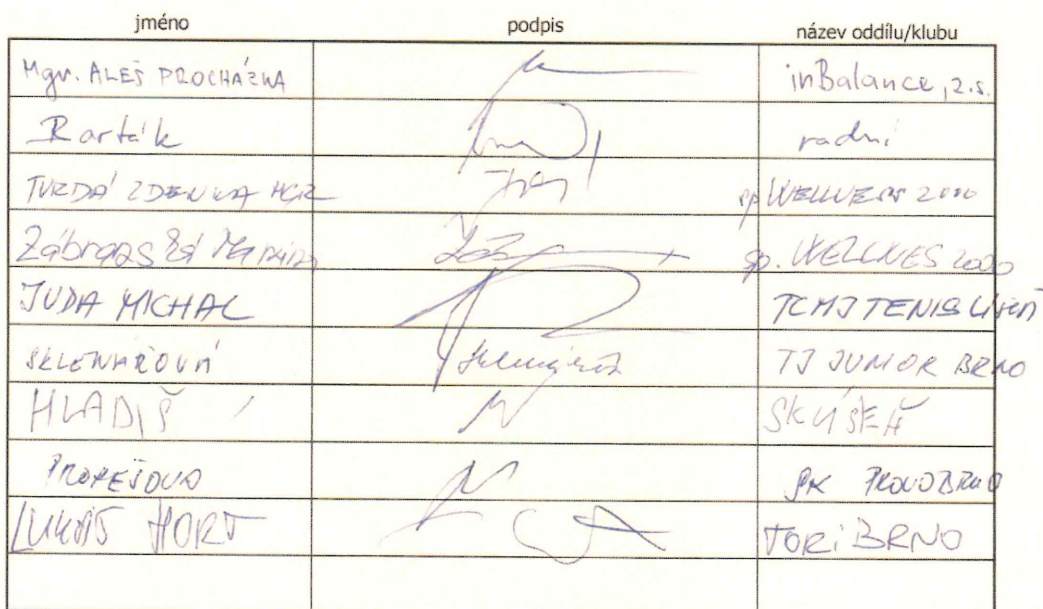 jméno podpis název oddílu/klubu
Mgr. ALEŠ PROCHÁZKA inBalance, z.s.
Barták radní
TVRDÁ ZDENKA MGR sp WELLNESS 2000
Zábranská sp. WELLNES 2000
JUDA MICHAL TCMJ TENIS LÍŠEŇ
SKLENÁŘOVÁ TJ JUNIOR BRNO
HLADIŠ SK LÍŠEŇ
PROKEŠOVÁ SK PROVO BRNO
LUKÁŠ HORT TORI BRNO